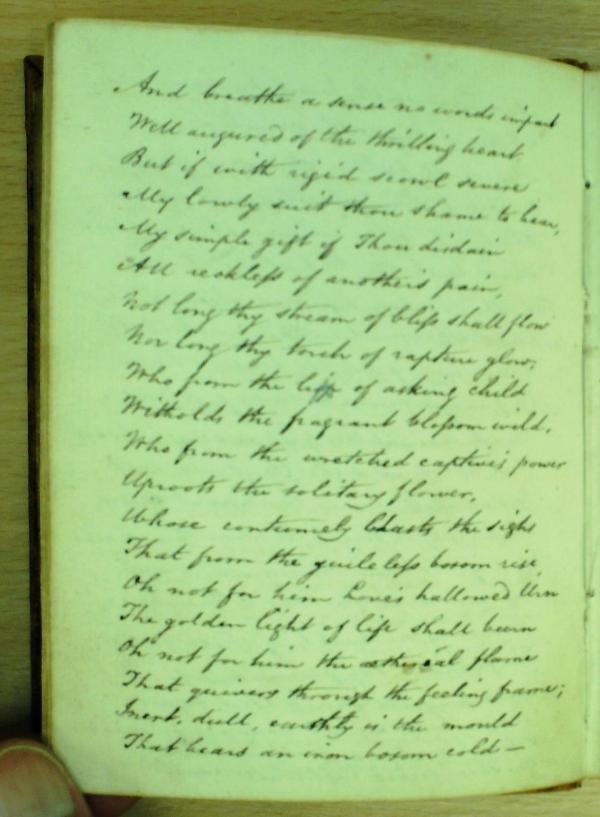 And breathe a sense no words impart
Well augured of the thrilling heart
But if with rigid scowl severe
My lowly suit thou shame to hear,
My simple gift if Thou disdain
All reckless of another's pain,
Not long thy stream of bliss shall flow
Nor long thy torch of rapture glow;
Who from the lip of asking child
Witholds the fragrant blossom wild,
Who from the wretched captive's power
Uproots the solitary flower,
Whose contumely blasts the sighs
That from the guileless bosom rise,
Oh not for him Love's hallowed Urn
The golden light of life shall burn
Oh not for him the etherial flame
That quivers through the feeling frame;
Inert, dull, earthly is the mould
That bears an iron bosom cold —